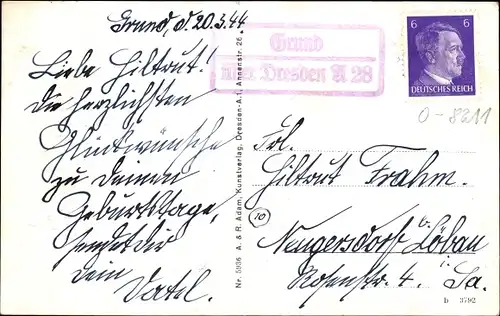 Grund, d. 20.3.44
Liebe Hiltrut!
Die herzlichsten
Glückwünsche
zu Deinem
Geburtstage,
sendet dir
dein
Vatel.
Nr. 5936 A. & R. Adam, Kunstverlag, Dresden-A.1, Annenstr. 26
Grund
über Dresden A 28
6 6
DEUTSCHES REICH
O-8211
Frl.
Hiltrut Frahm.
10
Neugersdorf b. Löbau
Rosenstr. 4. i. Sa.
b 3792